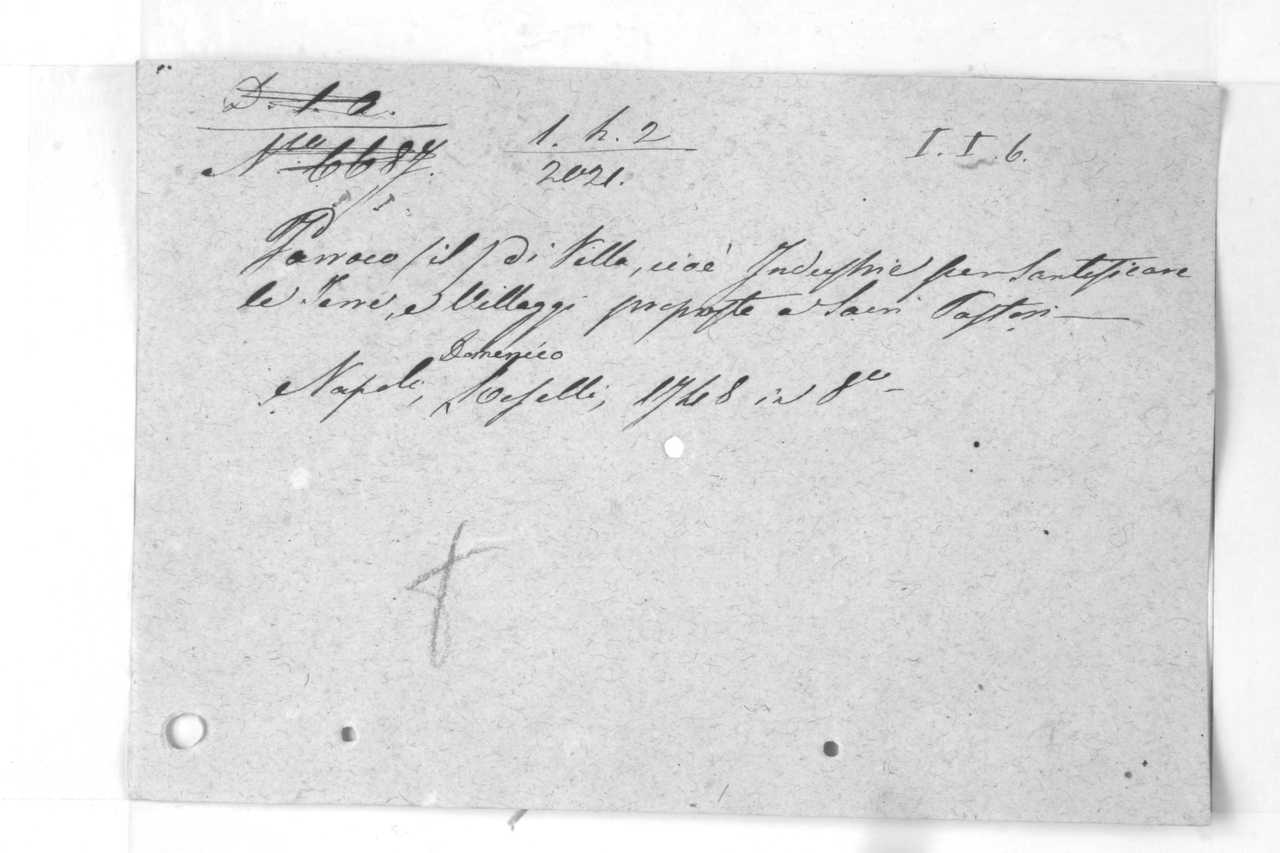 D. 1. 2.
N.ro 6687.
1. h. 2
2021.
I. I. 6.
Parroco (il) di Villa, cioè Industrie per Santificare
le Terre, e Villaggi proposte a Sacri Pastori —
Domenico
Napoli, Roselli, 1748 in 8º —